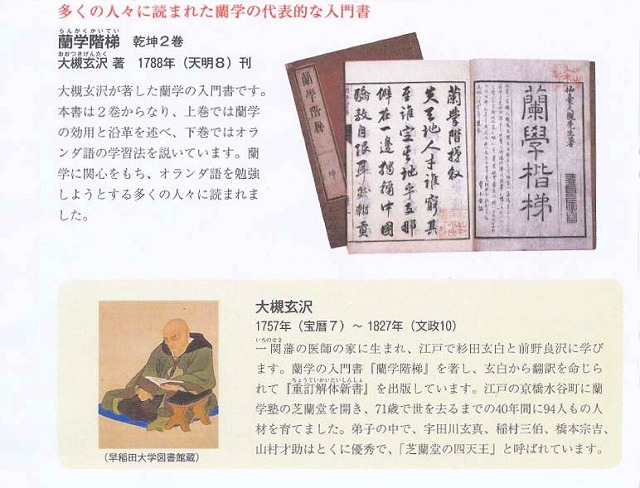 多くの人々に読まれた蘭学の代表的な入門書
らんがくかいてい
蘭学階梯 乾坤2巻
おおつきげんたく
大槻玄沢 著 1788年（天明8）刊
大槻玄沢が著した蘭学の入門書です。
本書は2巻からなり、上巻では蘭学
の効用と沿革を述べ、下巻ではオラ
ンダ語の学習法を説いています。蘭
学に関心をもち、オランダ語を勉強
しようとする多くの人々に読まれま
した。
蘭學階梯
蘭學階梯叙
蘭學楷梯
大槻玄沢
1757年（宝暦7）～ 1827年（文政10）
いちのせき
一関藩の医師の家に生まれ、江戸で杉田玄白と前野良沢に学び
ます。蘭学の入門書『蘭学階梯』を著し、玄白から翻訳を命じら
ちょうていかいたいしんしょ
れて『重訂解体新書』を出版しています。江戸の京橋水谷町に蘭
学塾の芝蘭堂を開き、71歳で世を去るまでの40年間に94人もの人
材を育てました。弟子の中で、宇田川玄真、稲村三伯、橋本宗吉、
山村才助はとくに優秀で、「芝蘭堂の四天王」と呼ばれています。
（早稲田大学図書館蔵）